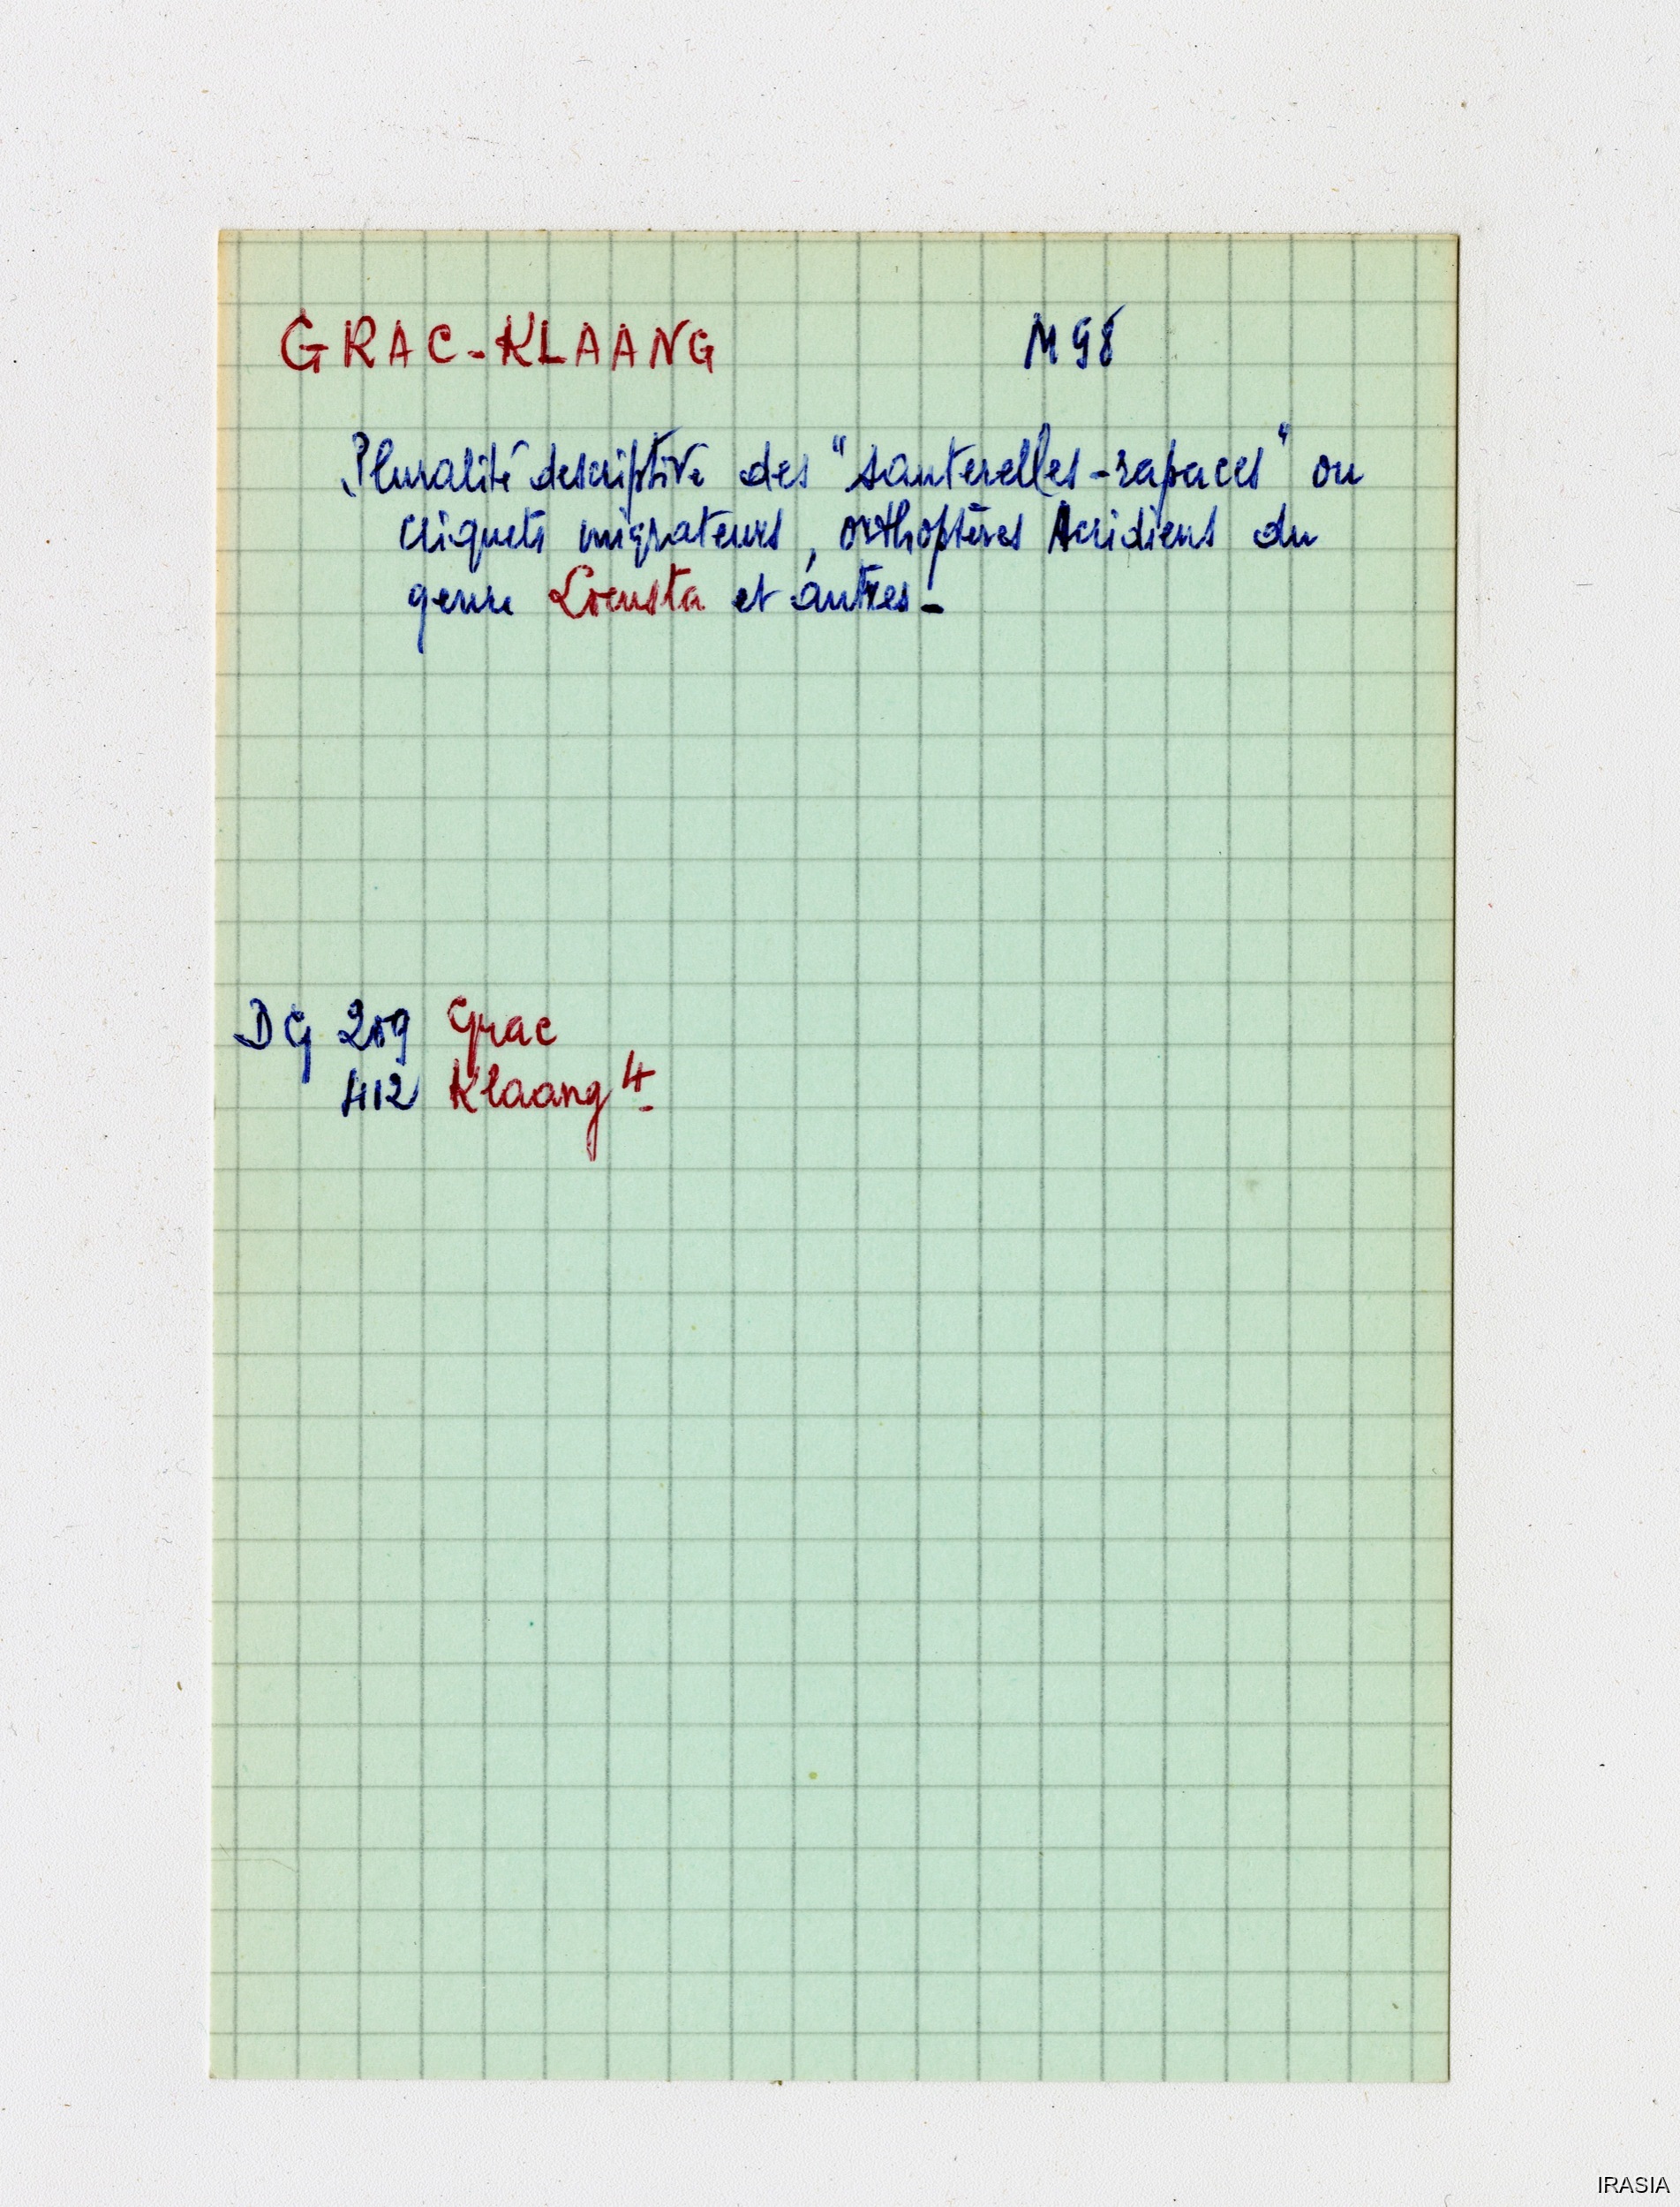 GRAC-KLAANG M98
Pluralité descriptive des "sauterelles-rapaces" ou
criquets migrateurs, orthoptères Acridiens du
genre Locusta et autres-
DG 209 Grac
412 Klaang 4
IRASIA